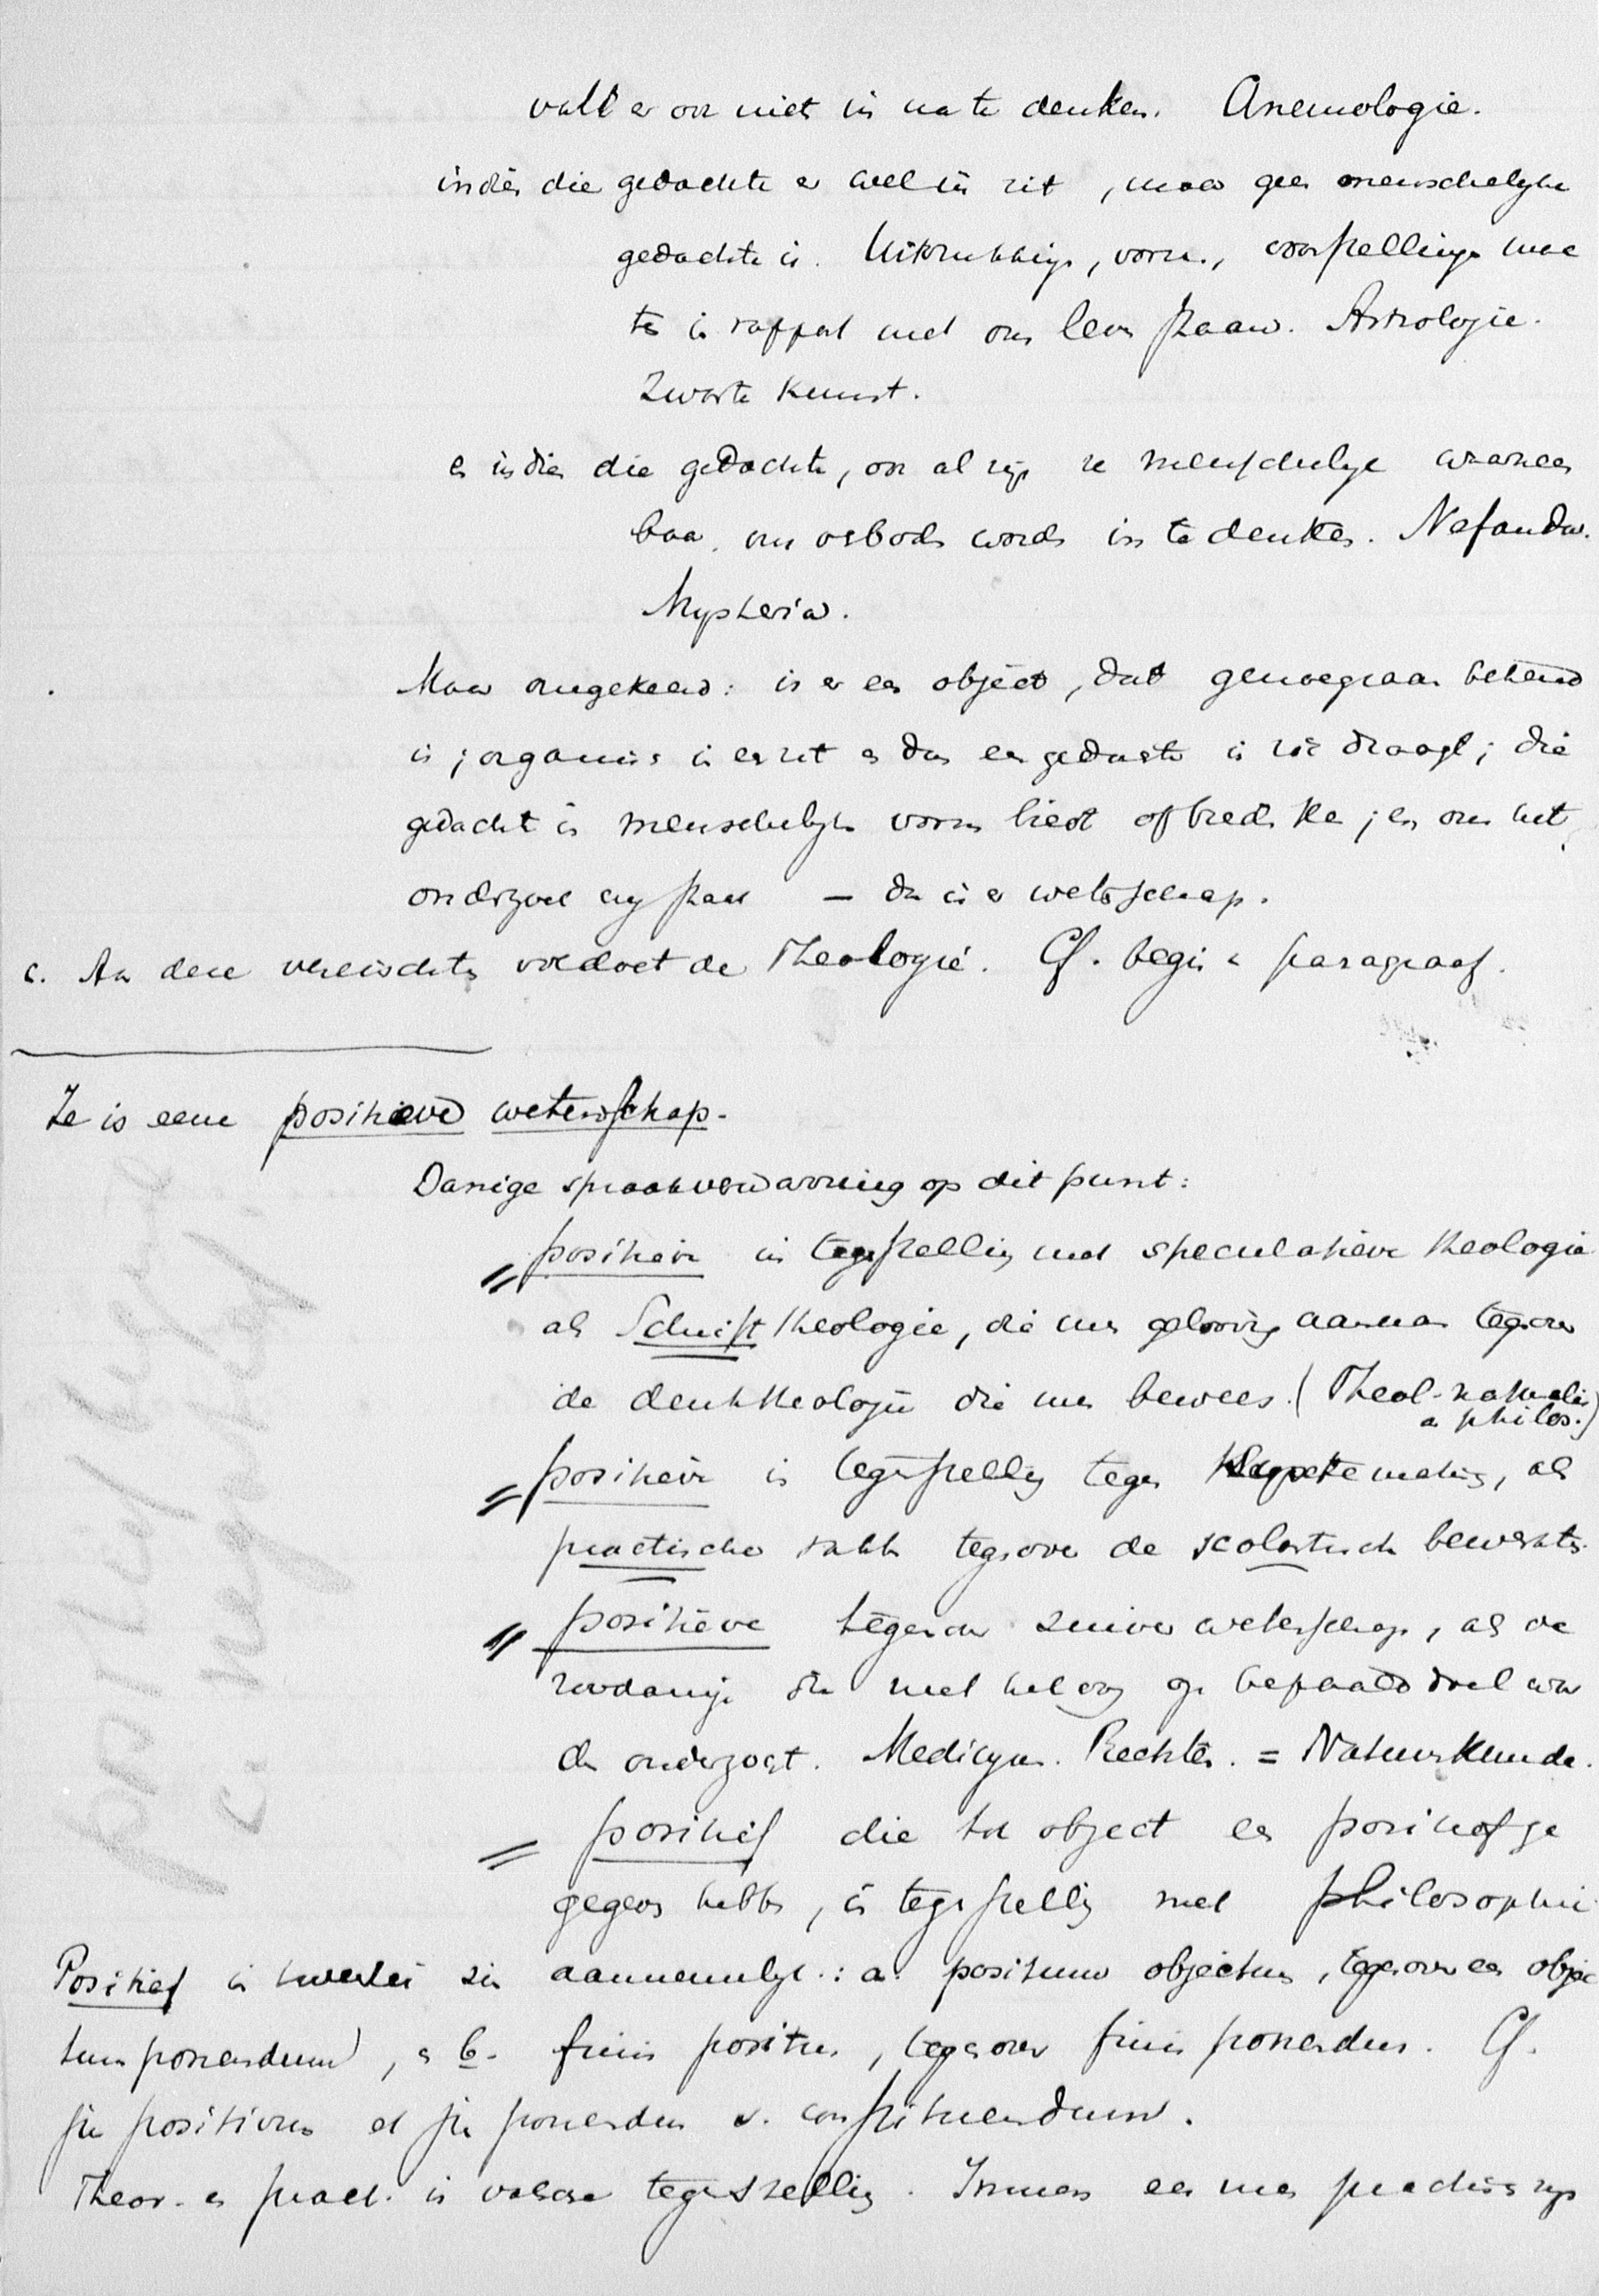 valt er ook niet in na te denken. Anemologie.
indien die gedachte er wel in zit, maar geen menschelyke
gedachte is. Uitdrukkings, vorm, voorstellings moe
ten in rapport met ons leven staan. Astrologie.
Zwarte Kunst.
en indien die gedachte, ook al zijn ze menschelyk waarneem
baar, ons verboden wordt in te denken. Nefanda.
Mysteria.
Maar omgekeerd: is er een object, dat genoegzaam bekend
is; organisch in een zet en dus een gedachte in zich draagt; die
gedacht in menschelyken vorm biedt of bieden kan; en ons het
onderzoek vry staat — dan is er wetenschap.
c. Aan deze vereischten voldoet de Theologie. Cf. begin paragraaf.
Ze is eene positieve wetenschap.
Danige spraakverwarring op dit punt:
positieve in tegenstelling met speculatieve theologie
als Schrifttheologie, die men geloovig aannam tegenover
de denktheologie die men bewees. (Theol. naturalis
en philos.)
positieve in tegenstelling tegen, als
practische tegenover de scolastisch bewerkte.
positieve tegenover zuivere wetenschap, als de
zoodanige die met het oog op bepaald doel wor
den onderzocht. Medicynen. Rechten. = Natuurkunde.
positief die tot object een positief ge
gegeven hebben, in tegenstelling met philosophie
Positief in tweeerlei zin aannemelyk: a. positum objectum, tegenover een objec
tum ponendum, en b. finis positus, tegenover finis ponendus. Cf.
jus positivum et jus ponendum v. constituendum.
Theor. en pract. is valsche tegenstelling. Immers een men practisch zyn